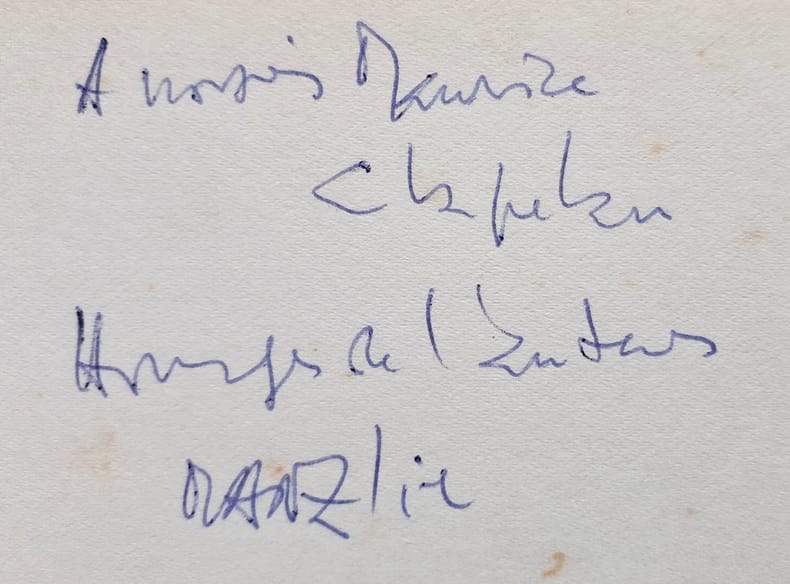 A Monsieur Maurice
Chapelan
Hommages de l'auteur